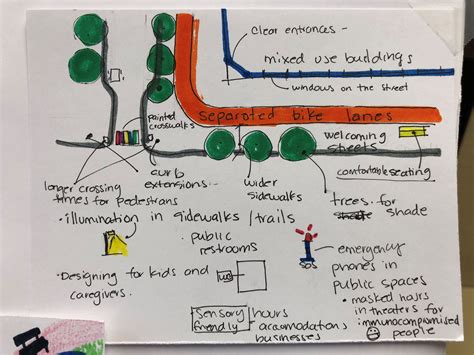 clear entrances
mixed use buildings
windows on the street
separated bike lanes
painted
crosswalks
welcoming
streets
comfortable seating
longer crossing
times for pedestrians
curb
extensions
wider
sidewalks
trees for
shade
• illumination in sidewalks / trails
• public
restrooms
• emergency
phones in
public spaces
SOS
• Designing for kids and
caregivers.
• masked hours
in theaters for
immunocompromised
people
Sensory
friendly
hours
accomodations
businesses